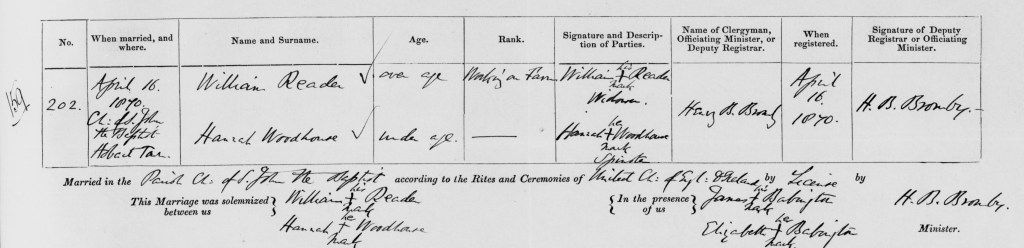 No.
When married, and where.
Name and Surname.
Age.
Rank.
Signature and Description of Parties.
Name of Clergyman, Officiating Minister, or Deputy Registrar.
When registered.
Signature of Deputy Registrar or Officiating Minister.
202.
April 16.
1870.
Ch: of S. John
the Baptist
William Reader
over age
Working on Farm
William his + mark Reader
Widower.
Hannah Woodhouse
under age.
Hannah her + mark Woodhouse
Spinster
Henry B. Bromby
April
16
1870.
H. B. Bromby.
Married in the Parish Ch: of S. John the Baptist according to the Rites and Ceremonies of United Ch: of Engl: & Ireland by License by
This Marriage was solemnized between us
William his + mark Reader
Hannah her + mark Woodhouse
(In the presence of us
James his + mark Babington
Elizabeth her + mark Babington
H. B. Bromby.
Minister.